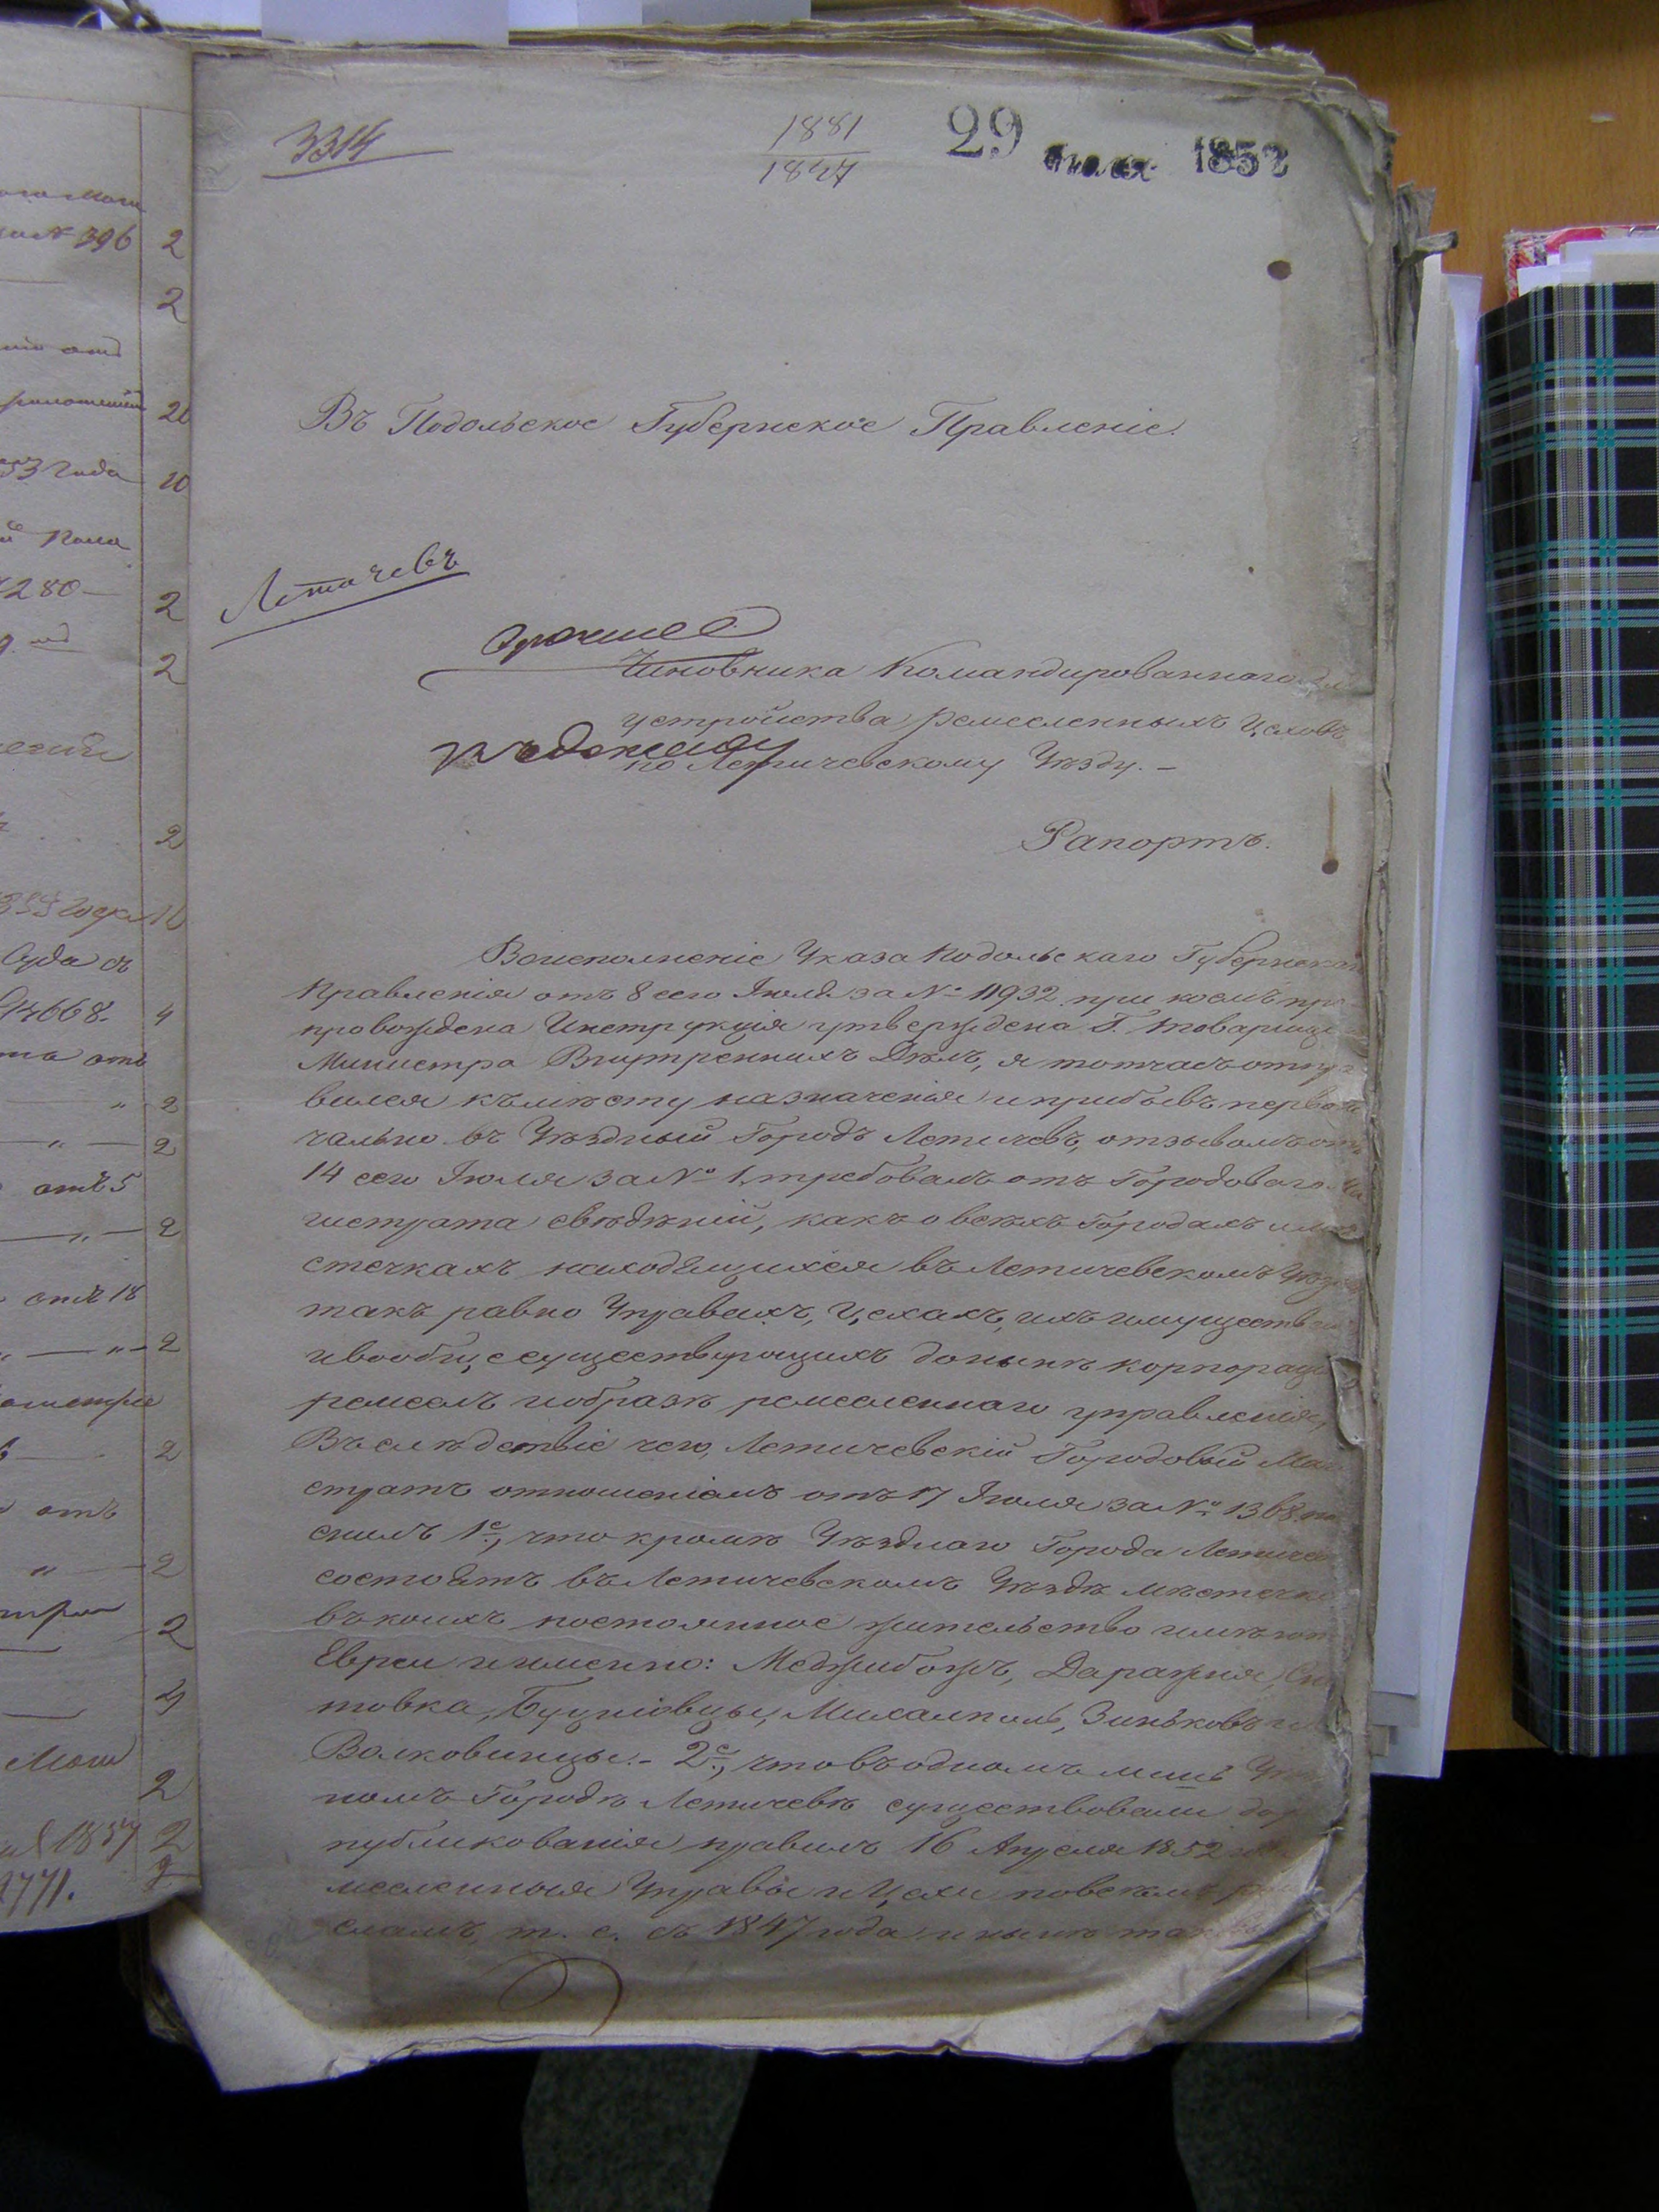 3314
1881
1827
29 1852
Въ Подольское Губернское Правленіе.
Летичевъ
Чиновника Командированнаго
устройства ремесленныхъ Цеховъ
къ докладу
по Летичевскому Уѣзду. —
Рапортъ.
Воисполненіе Указа Подольскаго Губернскаго
Правленія отъ 8 сего Іюля за № 11932 при коемъ пре
провождена Инструкція утверждена Г. Товарище
Министра Внутреннихъ Дѣлъ, я тотчасъ отпра
вился къ мѣсту назначенія и прибывъ первона
чально въ Уѣздный Городъ Летичевъ, отзывомъ отъ
14 сего Іюля за № 1, требовалъ отъ Городоваго Ма
гистрата свѣдѣній, какъ о всѣхъ Городахъ и мѣ
стечкахъ находящихся въ Летичевскомъ Уѣздѣ
такъ равно Управахъ, Цехахъ, ихъ имуществ
и вообще существующихъ донынѣ корпорац
ремеслъ и образѣ ремесленнаго управленія,
Въ слѣдствіе чего, Летичевскій Городовый Маги
стратъ отношеніемъ отъ 17 Іюля за № 1368
снилъ 1е, что кромѣ Уѣзднаго Города Летичева
состоятъ въ Летичевскомъ Уѣздѣ мѣстечки
въ коихъ постоянное жительство имѣютъ
Евреи и именно: Меджибожъ, Даражня,
товка, Буцнѣвцы, Михалполь, Зиньковъ и
Волковинцы. – 2е, что въ одномъ лишь
номъ Городѣ Летичевѣ существовали до
публикованія правилъ 16 Апреля 1852
месленныя Управы и Цехи по всѣмъ ре
сламъ, т. е. съ 1847 года и нынѣ
№ 396 2
2
20
53 года 10
280 — 2
2
2
10
Суда съ
668. 4
отъ
" 2
" 2
отъ 5
" 2
отъ 18
" 2
2
отъ
" 2
2
4
2
1857 2
1771. 2